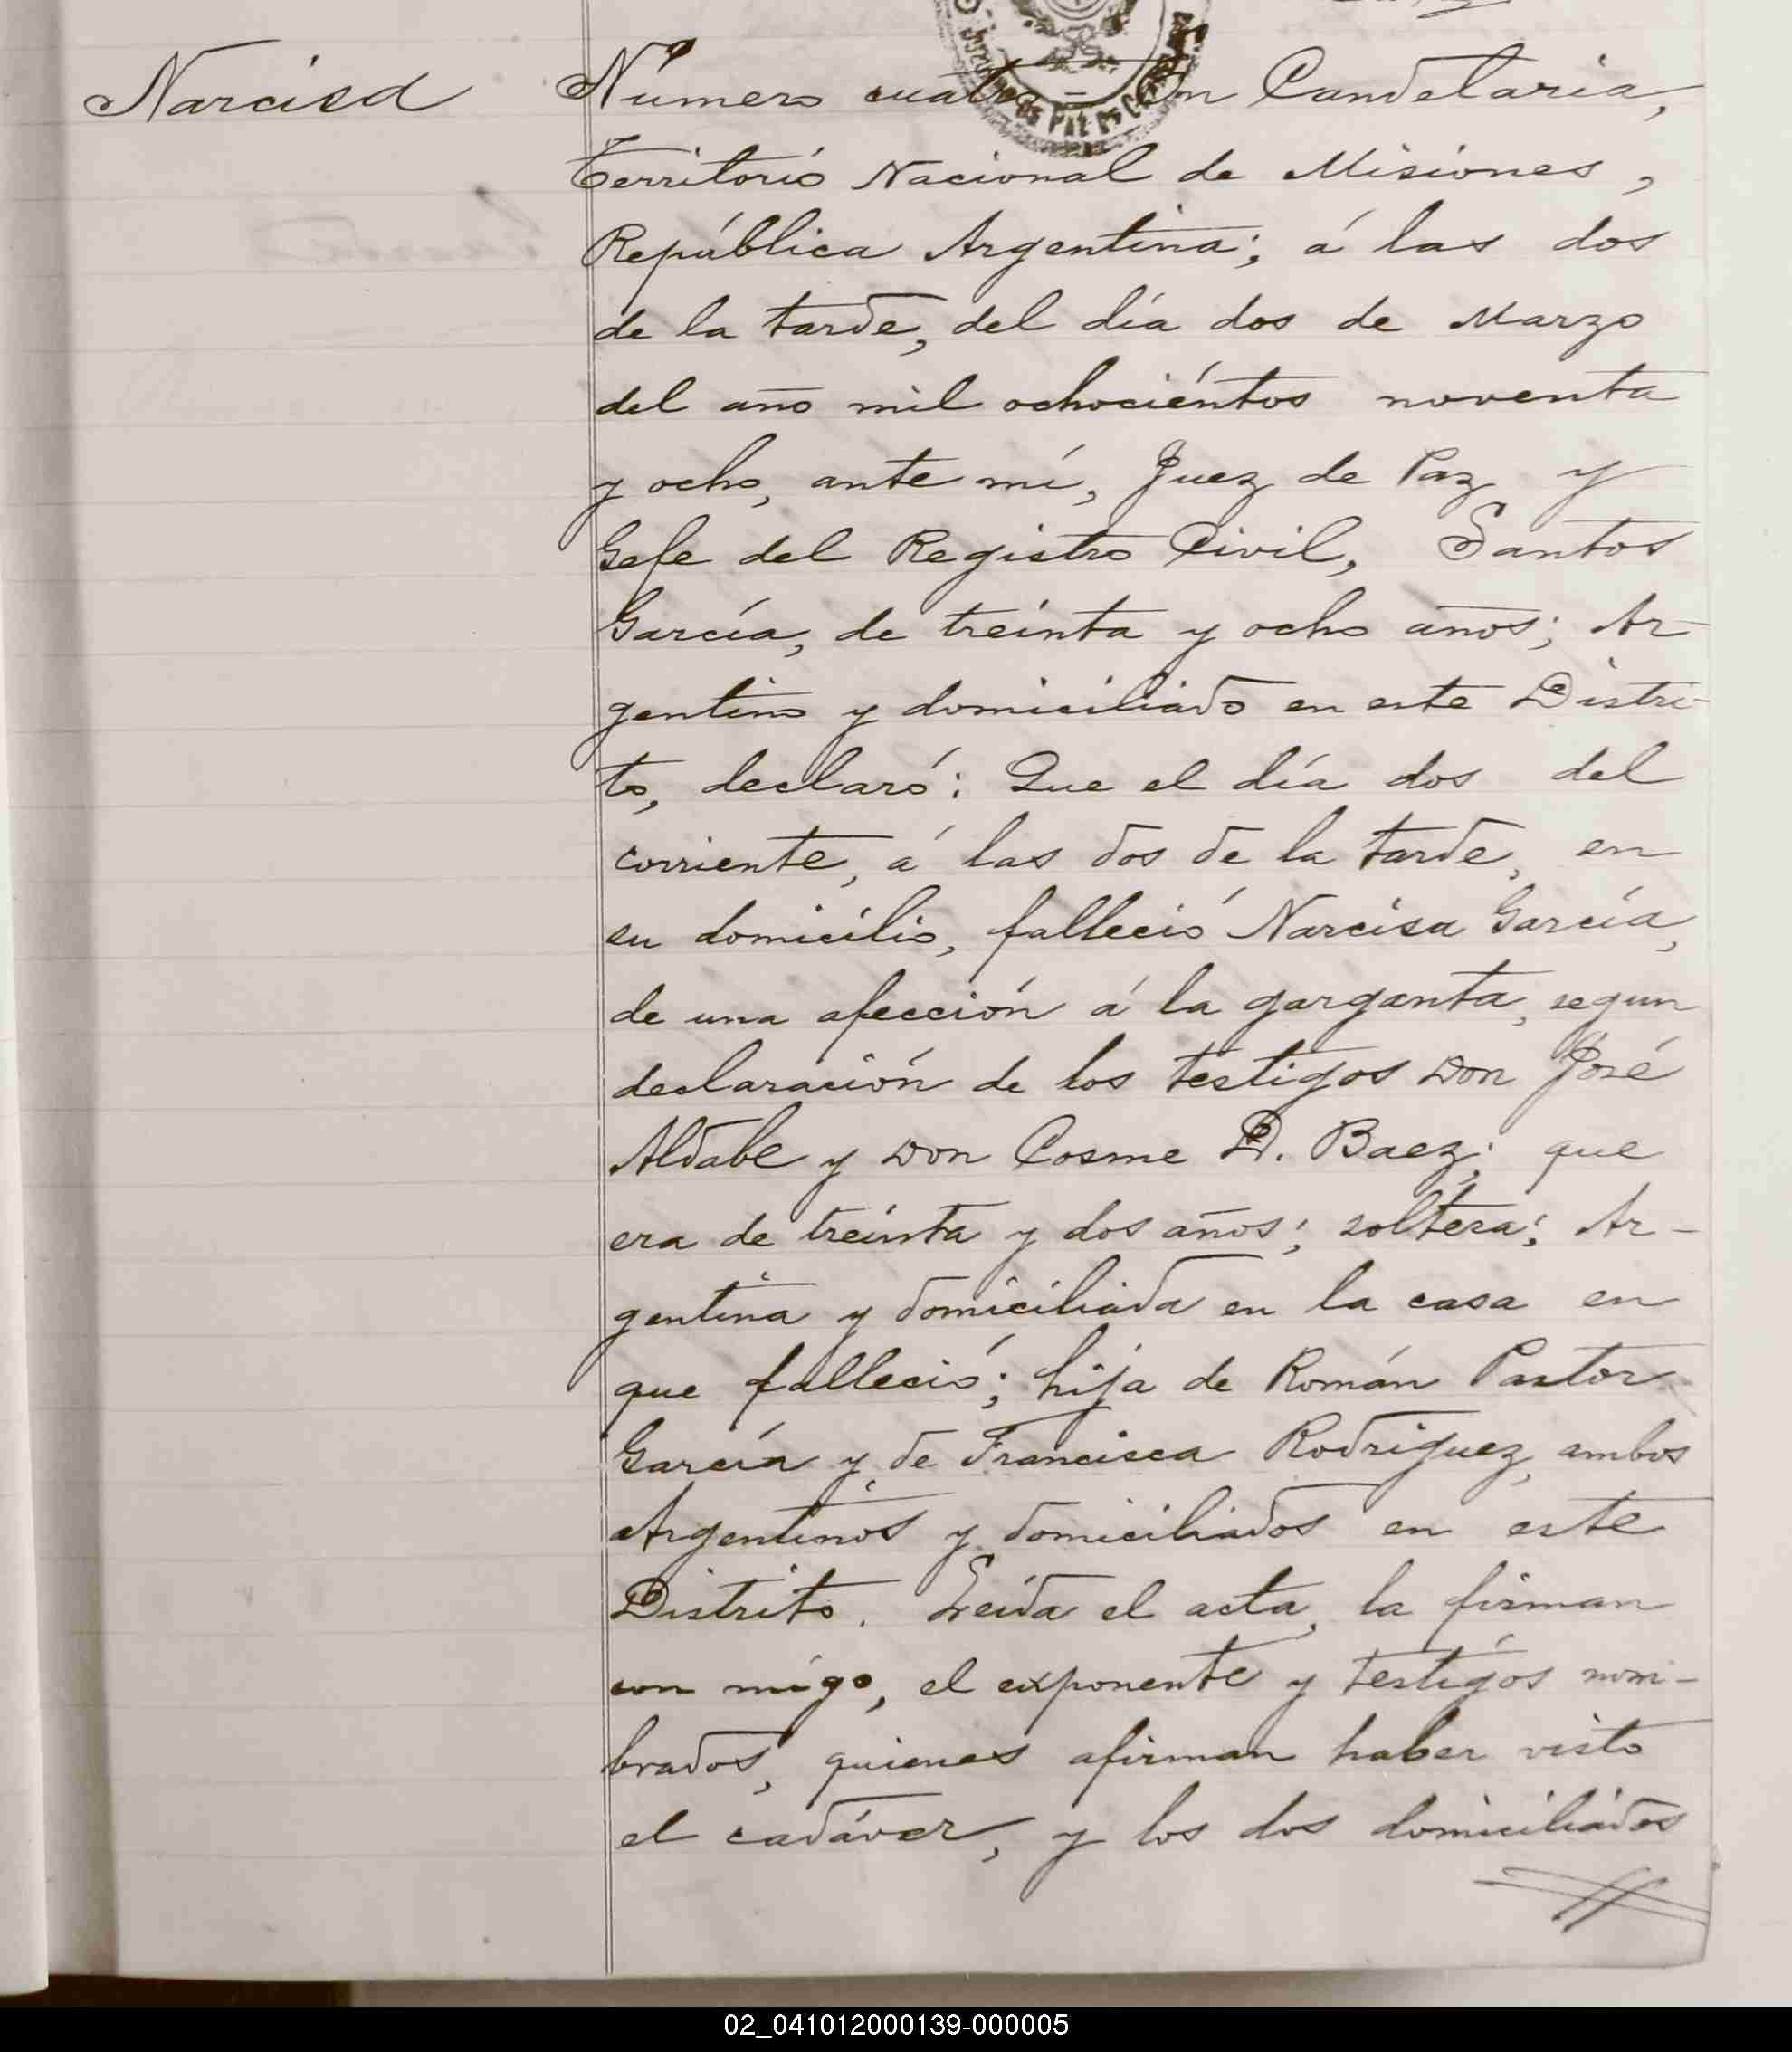 Narcisa
Número cuatro = En Candelaria,
Territorio Nacional de Misiones,
República Argentina; á las dos
de la tarde, del día dos de Marzo
del año mil ochociéntos noventa
y ocho, ante mí, Juez de Paz y
Gefe del Registro Civil, Santos
García, de treinta y ocho años; Ar-
gentino y domiciliado en este Distri-
to, declaró: Que el día dos del
corriente, á las dos de la tarde, en
su domicilio, falleció Narcisa García,
de una afección á la garganta, segun
declaración de los testigos Don José
Aldabe y Don Cosme D. Baez; que
era de treinta y dos años; soltera; Ar-
gentina y domiciliada en la casa en
que falleció; hija de Román Pastor
García y de Francisca Rodriguez, ambos
Argentinos y domiciliados en este
Distrito. Leída el acta, la firman
con migo, el exponente y testigos nom-
brados, quienes afirman haber visto
el cadáver, y los dos domiciliados
02_041012000139-000005